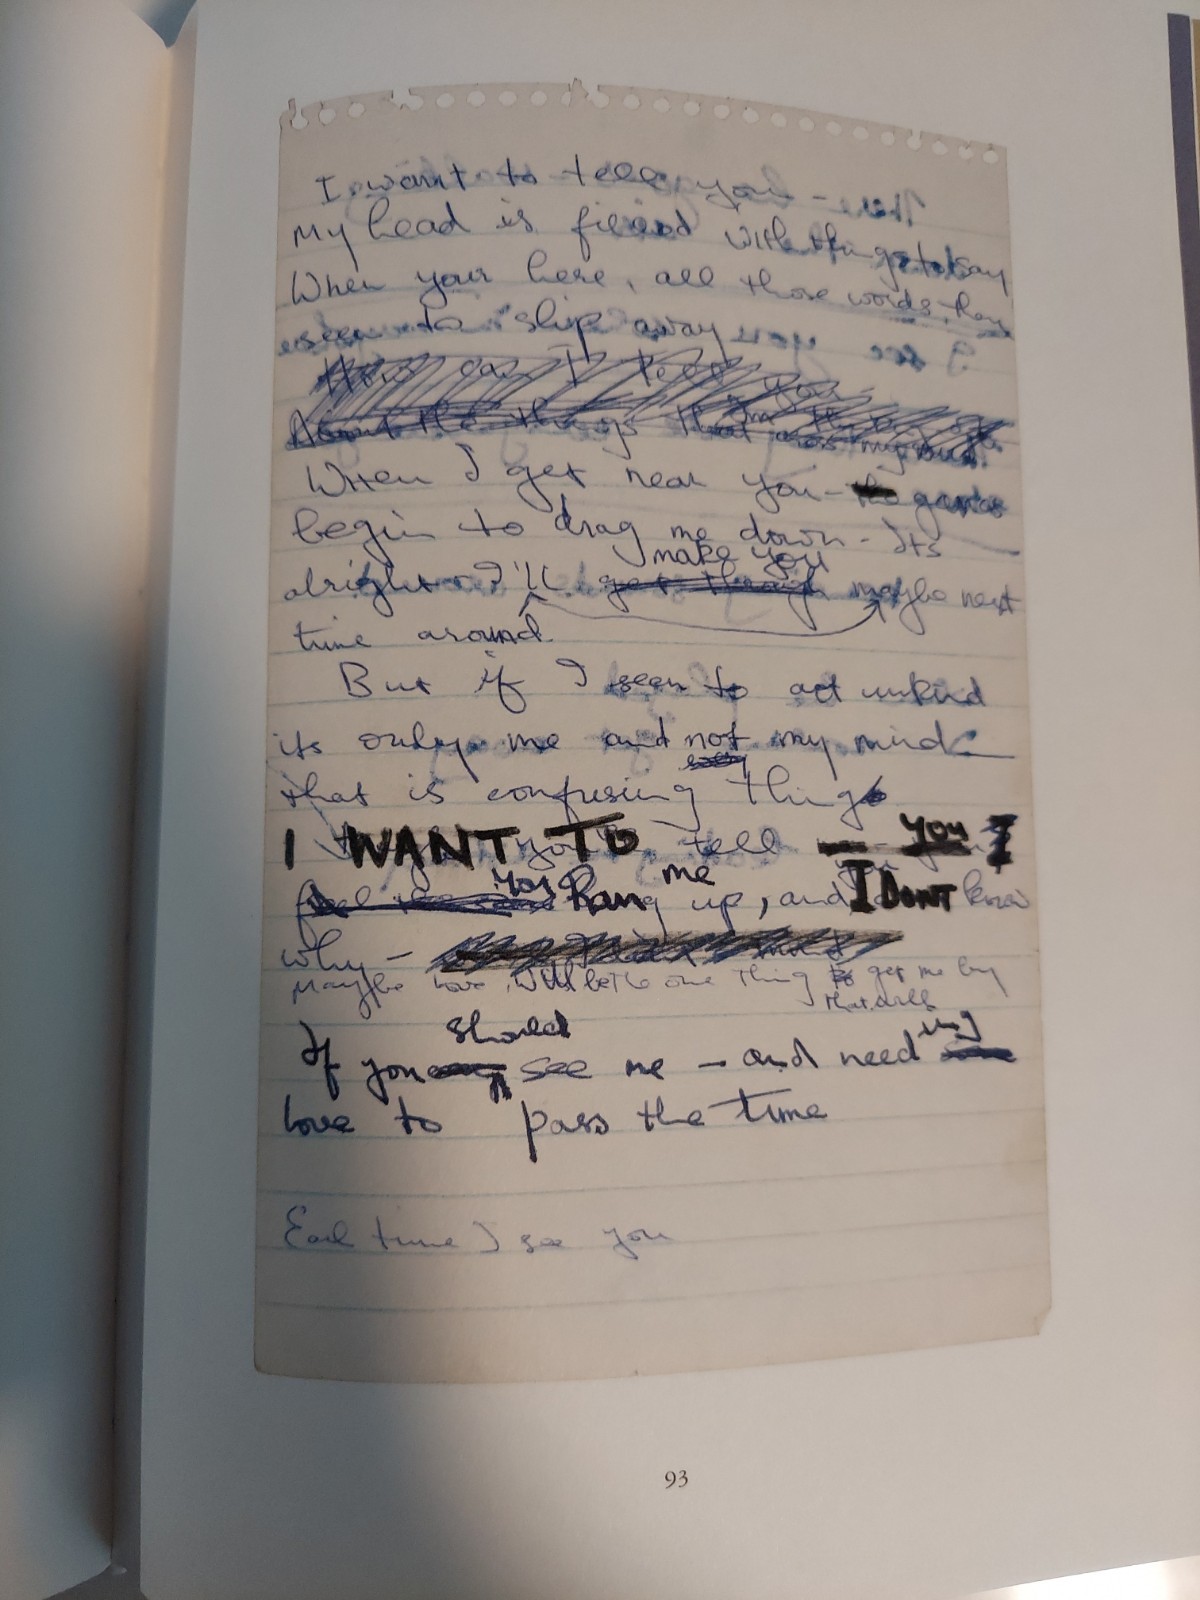 I want to tell you -
My head is filled with things to say
When your here, all those words, they
seem to slip away
How can I tell you
About the things that
When I get near you - the games
begin to drag me down - Its
make you
alright I'll get through maybe next
time around
But if I seem to act unkind
its only me and not my mind
that is confusing things
I WANT TO tell you I
feel you hang me up, and I DONT know
why -
Maybe love will be the one thing to get me by
that will
should
If you see me - and need
love to pass the time
Each time I see you
93